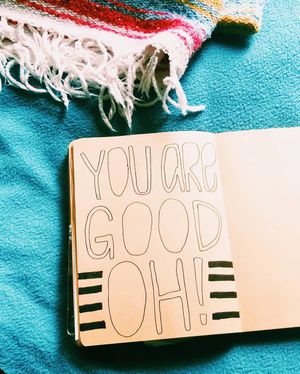 YOU ARE
GOOD
OH!